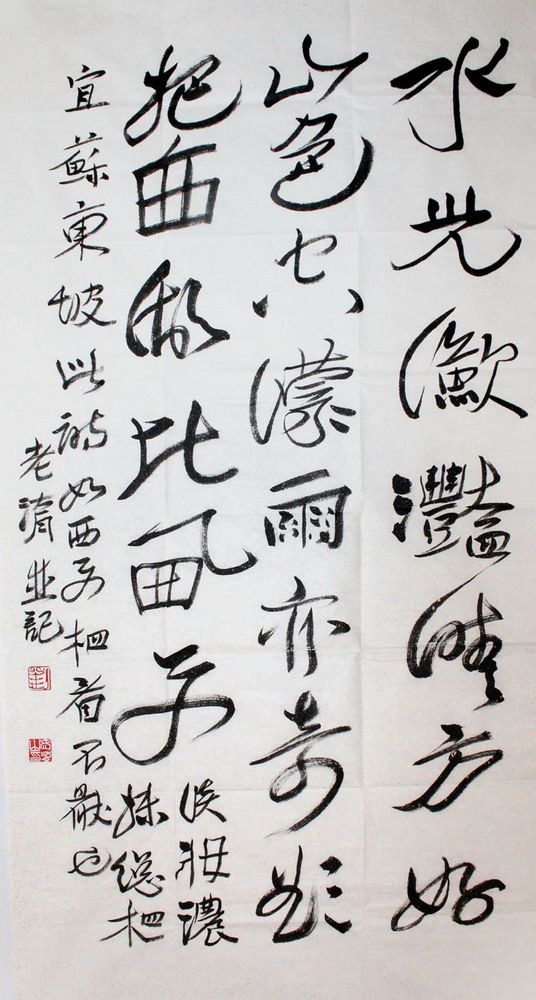 水光瀲灩晴方好
山色空濛雨亦奇欲
把西湖比西子
淡妝濃
抹總相
宜蘇東坡此詩如西子相看不厭也
老並記